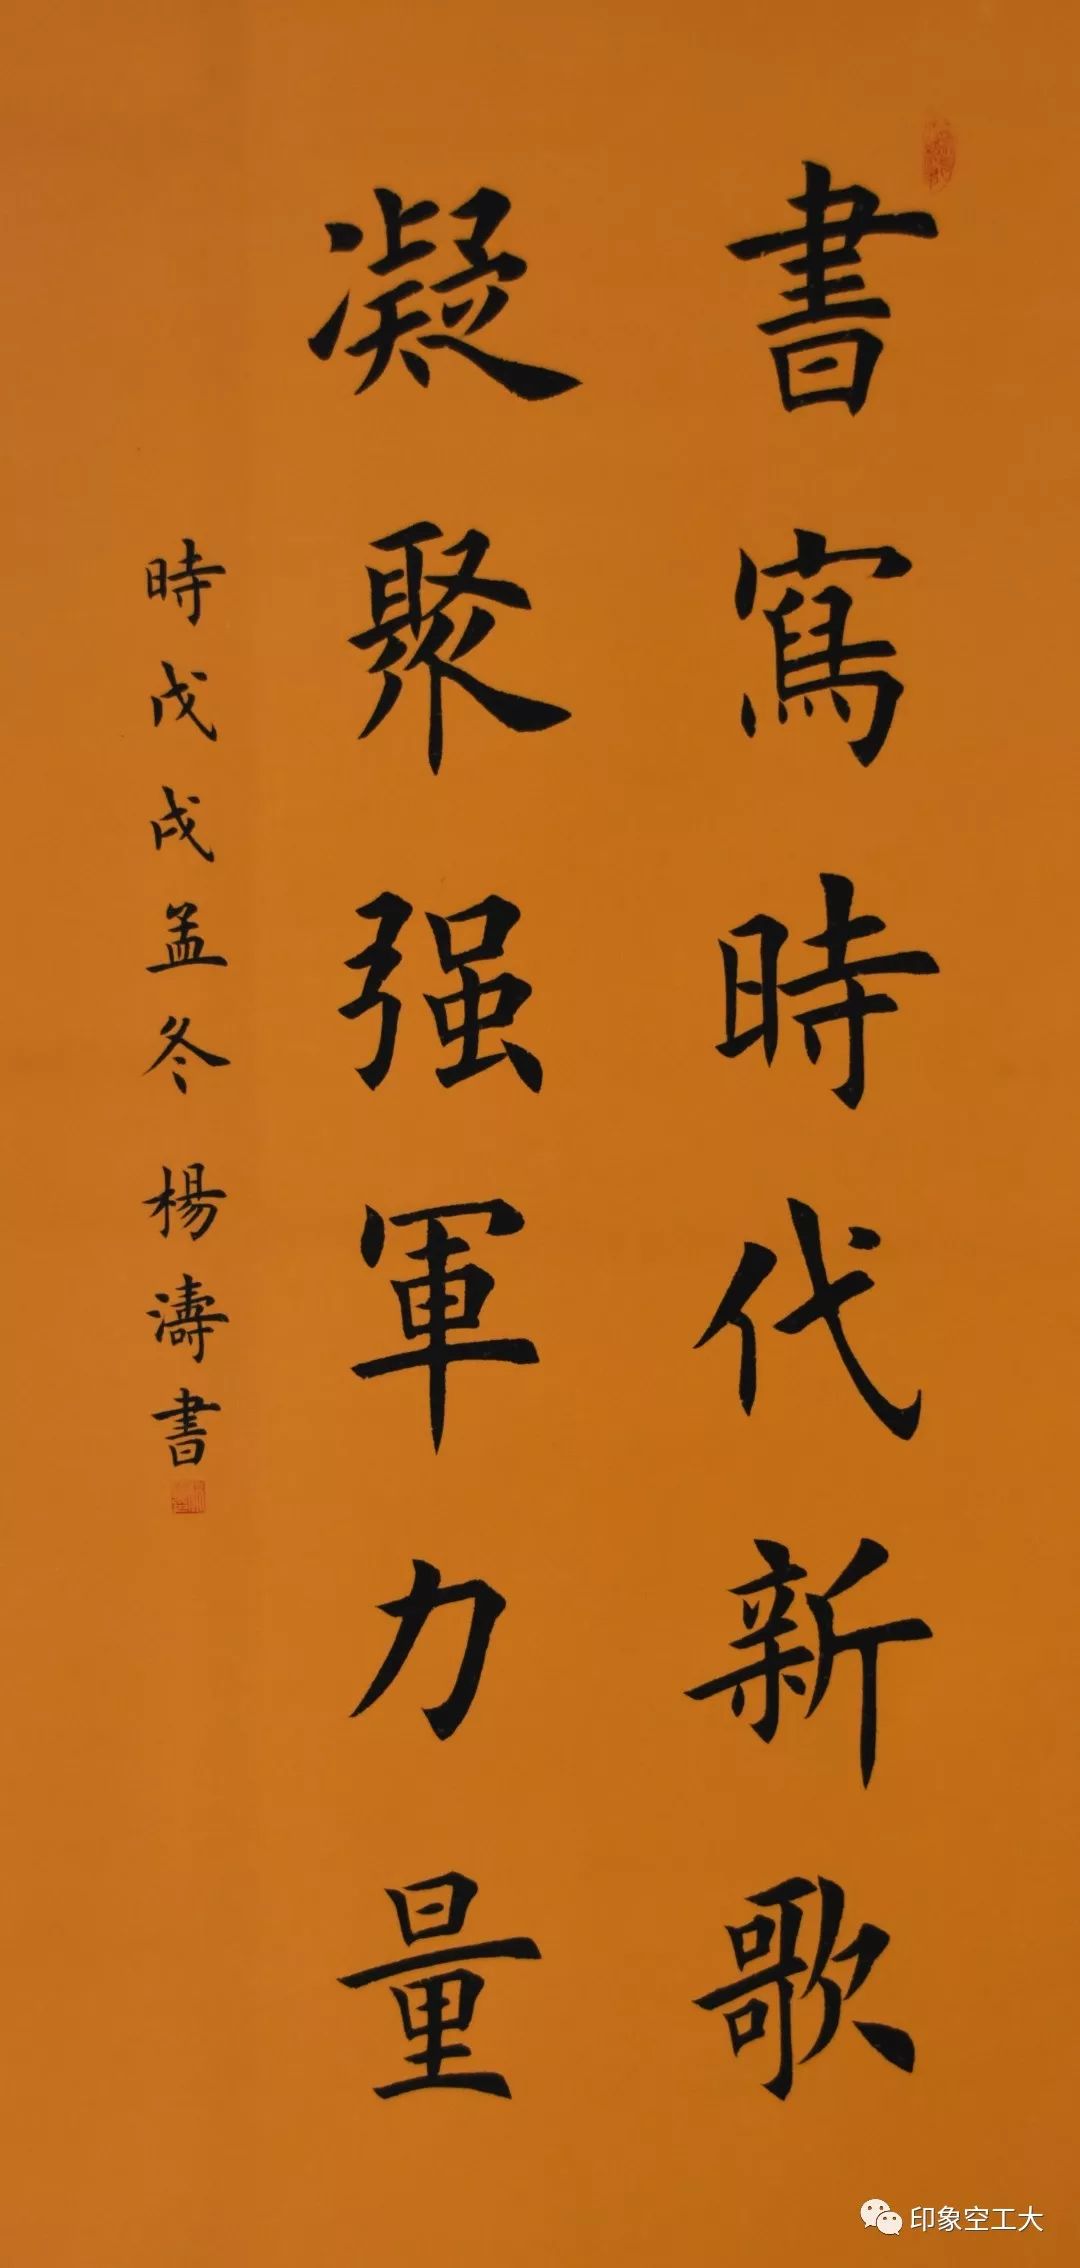 書寫時代新歌
凝聚强軍力量
時戊戌孟冬 楊濤書
印象空工大